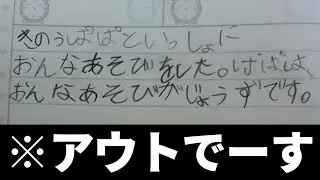 きのうぱぱといっしょに
おんなあそびをした。ぱぱは、
おんなあそびがじょうずです。
※アウトでーす